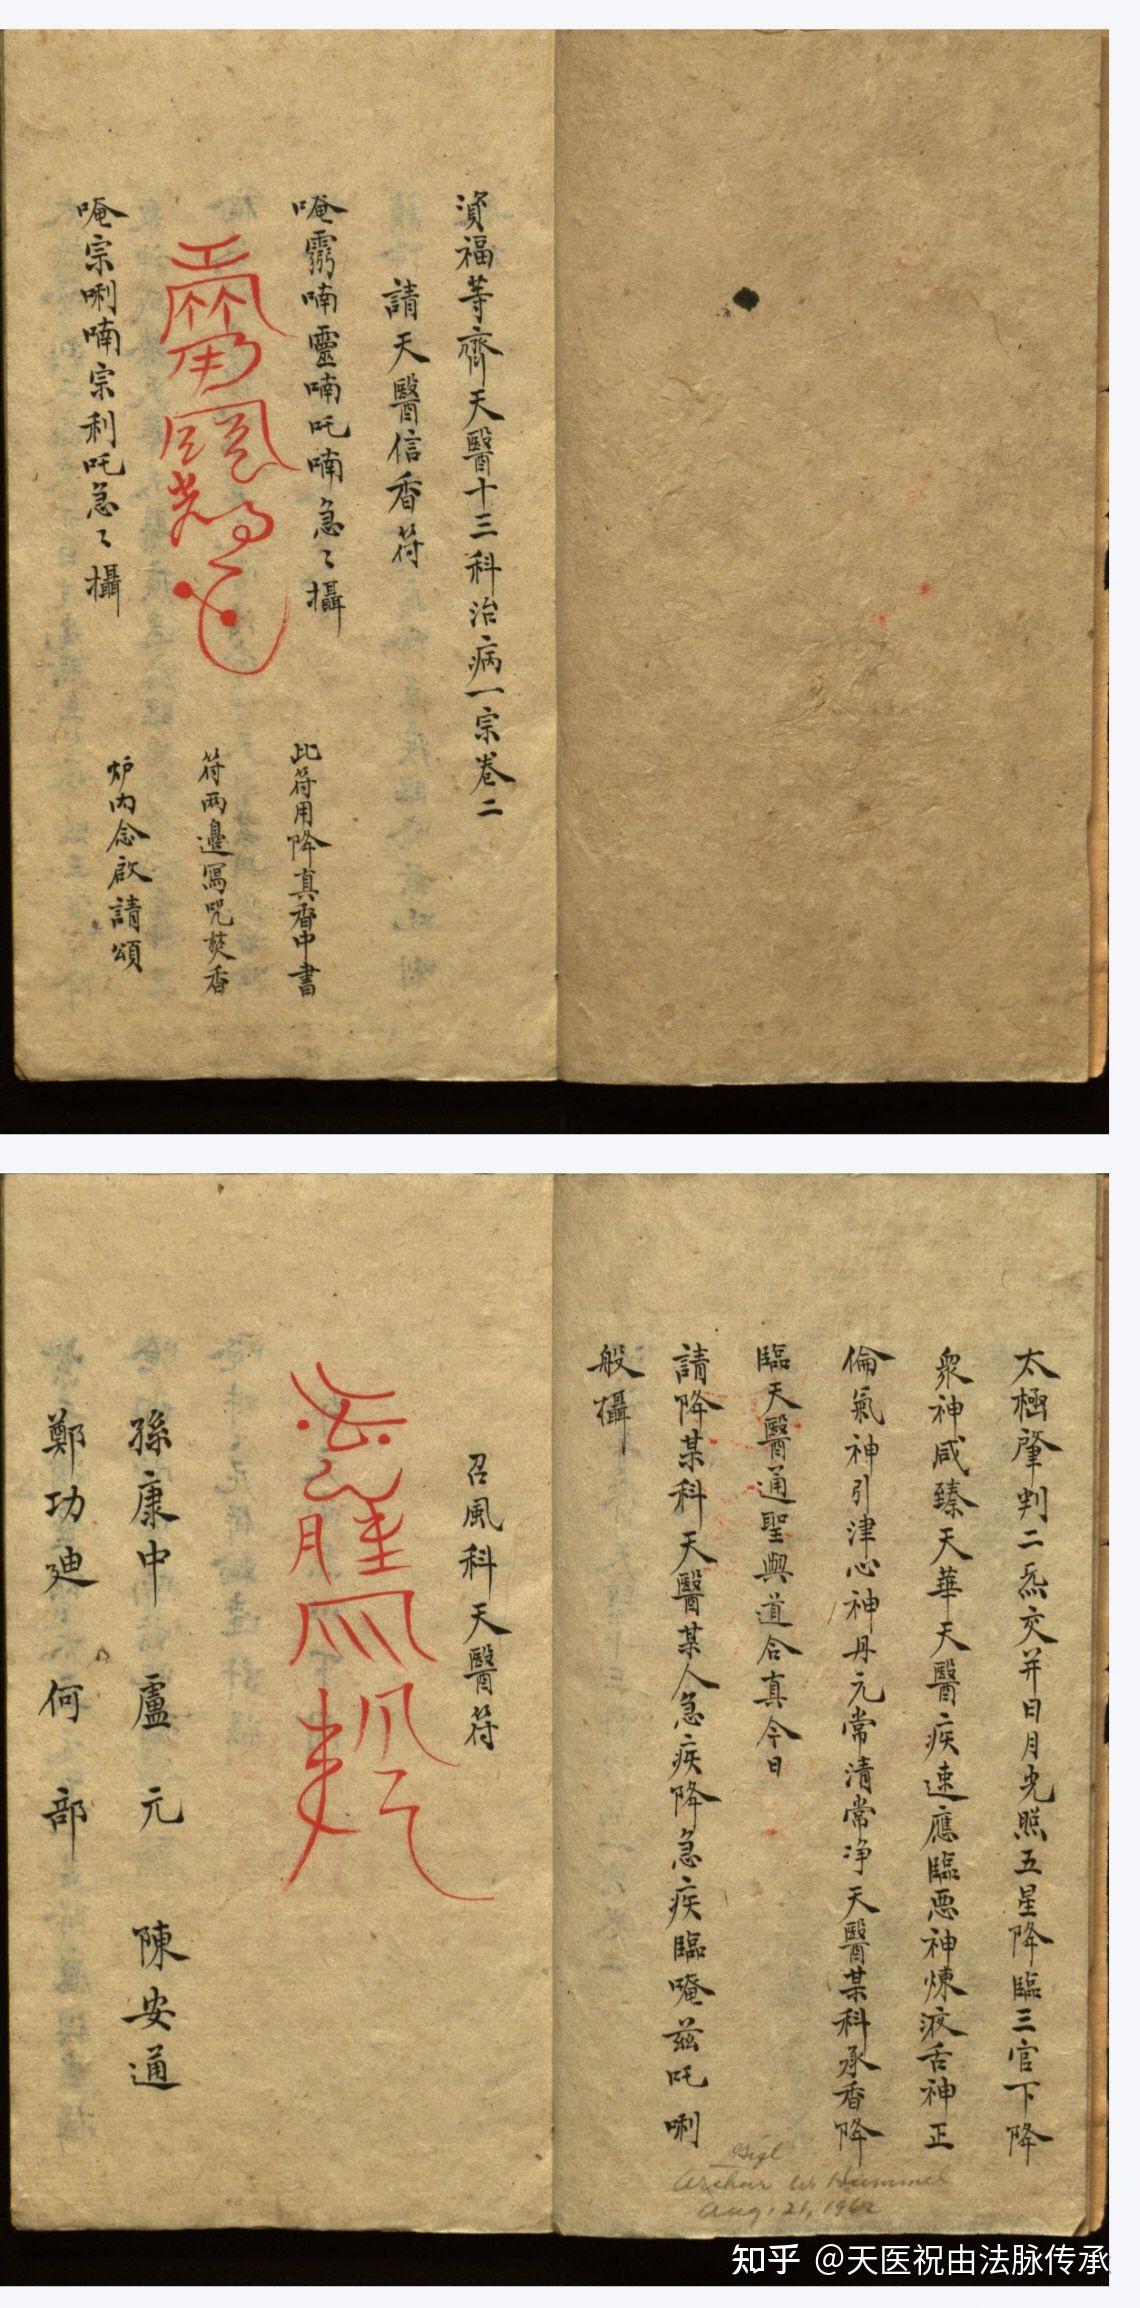 資福等齊天醫十三科治病一宗卷二
請天醫信香符
唵霛喃靈喃吒喃急〻攝
唵宗唎喃宗利吒急〻攝
此符用降真香中書
符两邉寫咒焚香
炉内念啟請頌
太極肇判二炁交并日月光照五星降臨三官下降
衆神咸臻天華天醫疾速應臨悪神煉液舌神正
倫氣神引津心神丹元常清常净天醫某科承香降
臨天醫通聖與道合真今日
請降某科天醫某人急疾降急疾臨唵兹吒唎
般攝
召風科天醫符
孫康中 盧元 陳安通
鄭功廸 何部
Gift
Arthur W Hummel
Aug. 21, 1962
知乎 @天医祝由法脉传承